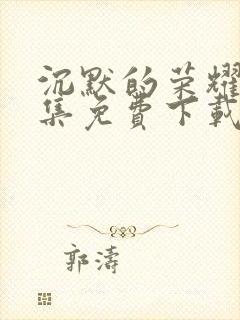 沉默的荣耀
集免費下載
郭濤